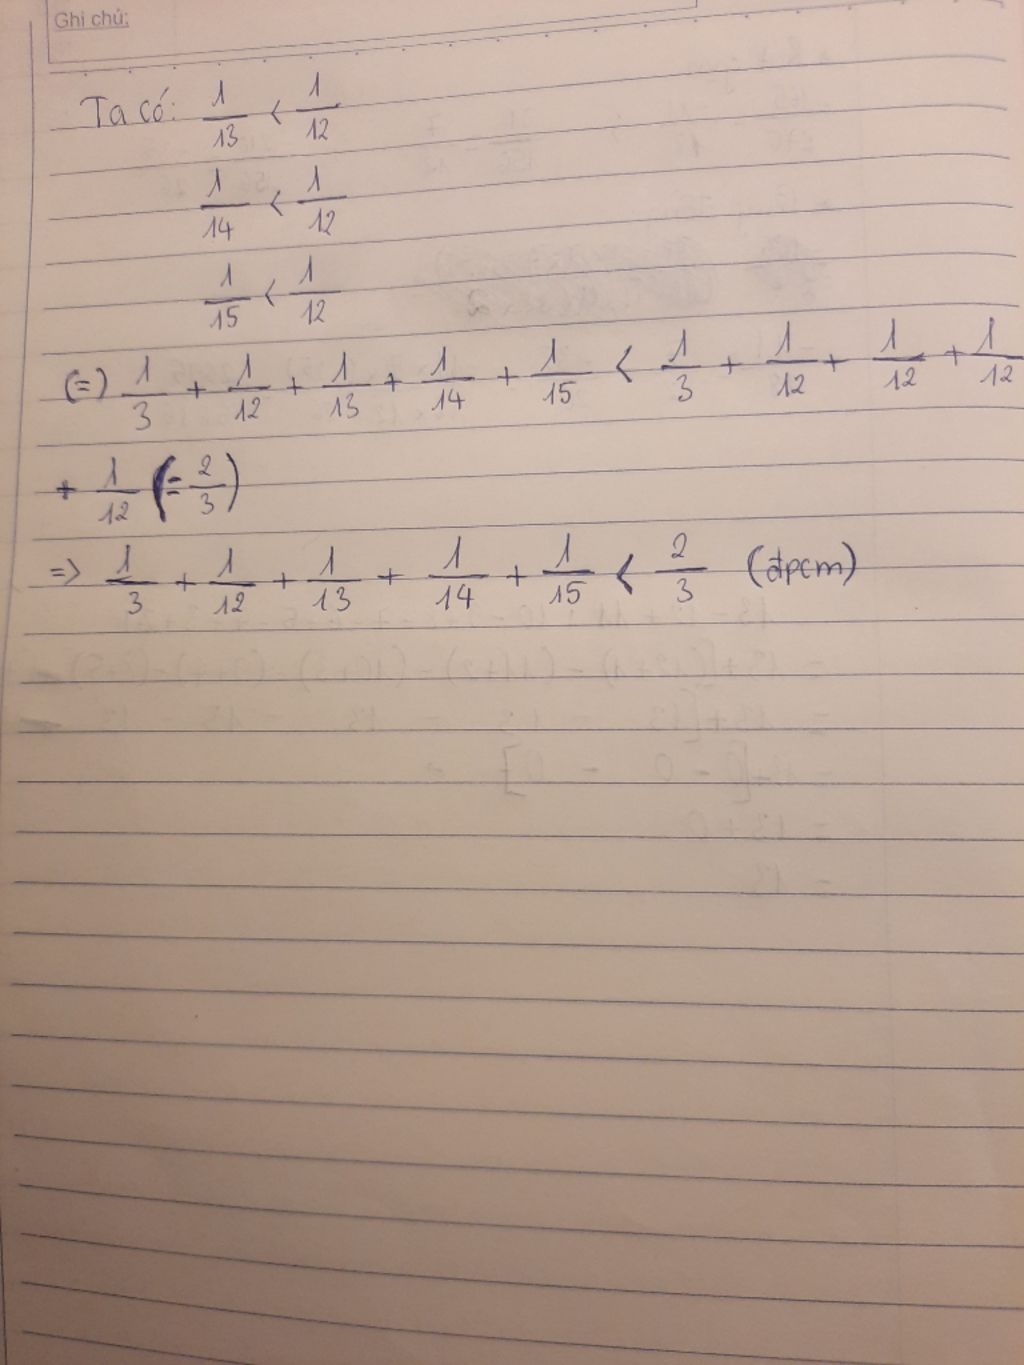 Ghi chú:
Ta có: 1/13 < 1/12
1/14 < 1/12
1/15 < 1/12
(=) 1/3 + 1/12 + 1/13 + 1/14 + 1/15 < 1/3 + 1/12 + 1/12 + 1/12
+ 1/12 (= 2/3)
=> 1/3 + 1/12 + 1/13 + 1/14 + 1/15 < 2/3 (đpcm)